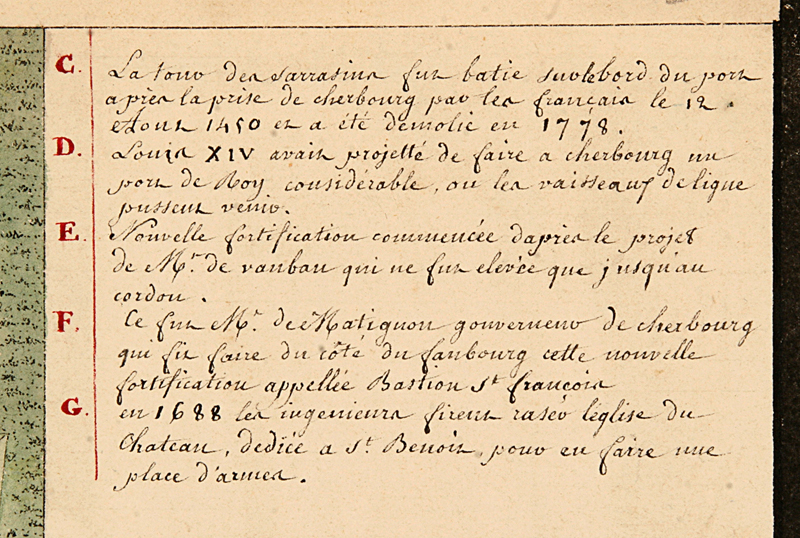 C. La tour des sarrasins fut batie sur le bord du port
apres la prise de cherbourg par les français le 12.
Aout 1450 et a été démolie en 1778.
D. Louis XIV avait projetté de faire a cherbourg un
port de Roy considérable, ou les vaisseaux de ligne
pussent venir.
E. Nouvelle fortification commencée dapres le projet
de Mr. de vauban qui ne fut elevée que jusqu'au
cordon.
F. Ce fut Mr. de Matignon gouverneur de cherbourg
qui fit faire du côté du faubourg cette nouvelle
fortification appellée Bastion St françois
G. en 1688 les ingenieurs firent raser léglise du
Chateau, dediée a St. Benoit, pour en faire une
place d'armes.